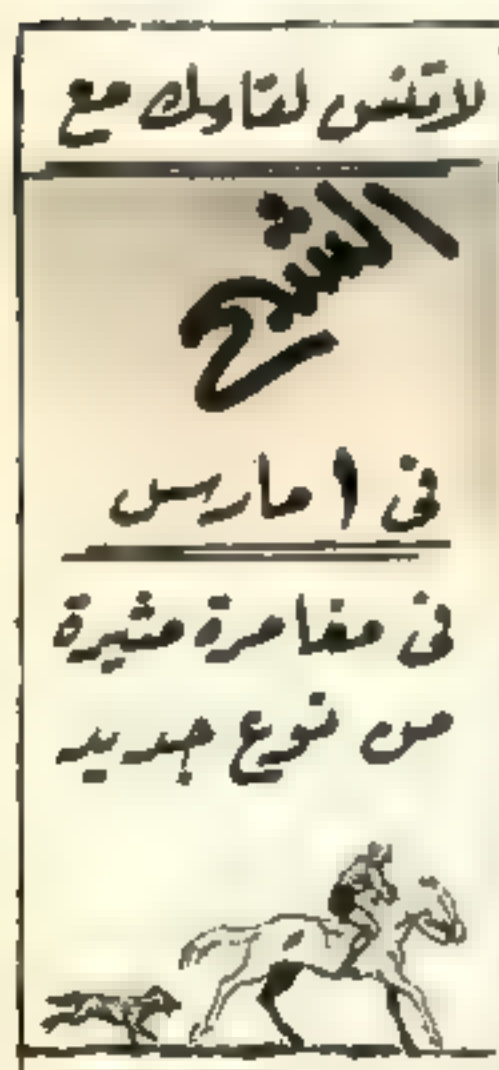 لا تنس لقاءك مع
الشبح
فى ١ مارس
فى مغامرة مثيرة
من نوع جديد